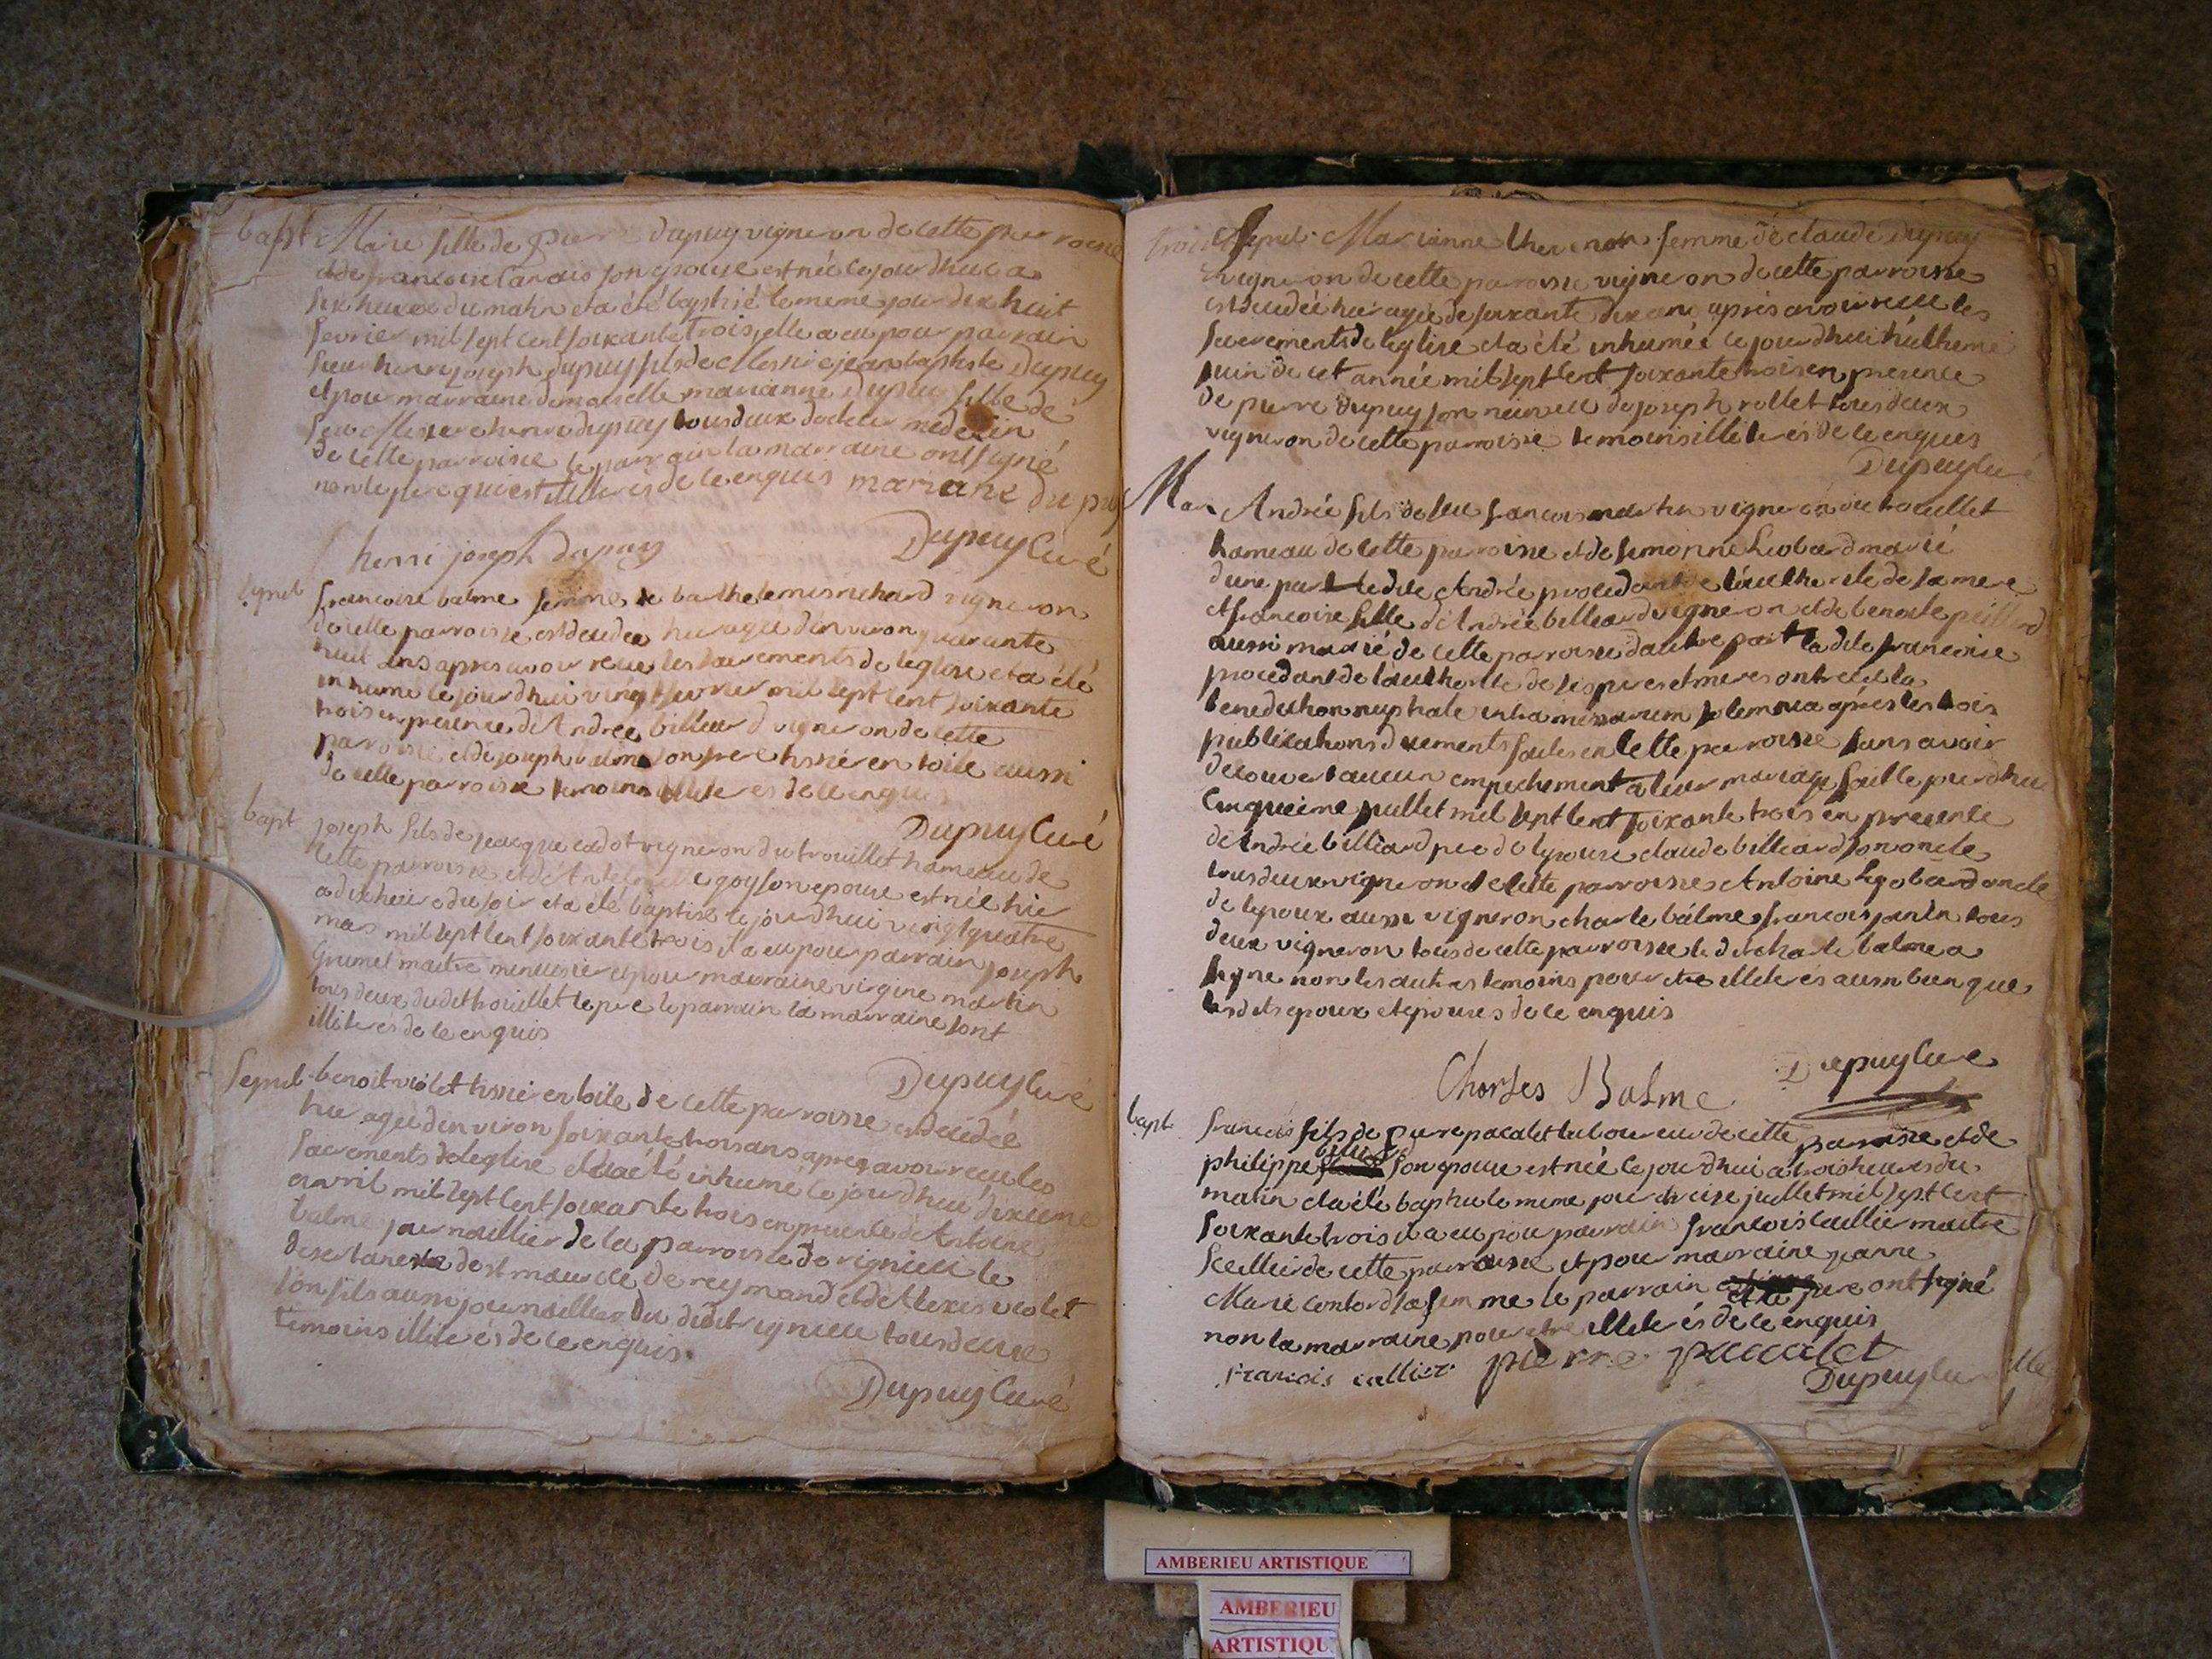 bapt Marie fille de Pierre dupuy vigneron de cette parroisse
et de francoise son epouse est née ce jour dhui a
six heures du matin et a été baptisé le meme jour dix huit
fevrier mil sept cent soixante trois, elle a eu pour parrain
sieur henri joseph dupuy fils de Messire jean baptiste Dupuy
et pour marraine demoiselle marianne Dupuy fille de
feu Messire henri dupuy tous deux docteur medecin
de cette parroisse le parrain la marraine ont signé
non le pere qui est illiterés de ce enquis mariane du puy
henri joseph dupuy Dupuy Curé
sepul francoise balme femme de barthelemi michard vigneron
de cette parroisse est decedée hier agée d'environ quarante
huit ans apres avoir recue les sacrements de leglise et a été
inhumé ce jour d'hui vingt fevrier mil sept cent soixante
trois en presence d'Andree billiard vigneron de cette
parroisse et de joseph balme son frere tissié en toile aussi
de cette parroisse temoins illiterés de ce enquis
Dupuy Curé
bapt joseph fils de jacque cadot vigneron du trouillet hameau de
cette parroisse et d'Anthelmette goy son epouse est né hier
a dix heure du soir et a été baptisé ce jour d'hui vingt quatre
mars mil sept cent soixante trois il a eu pour parrain joseph
Grumet maitre menusier et pour marraine virgine martin
tous deux dudit trouillet le pere le parrain la marraine sont
illiterés de ce enquis
Dupuy Curé
Sepul benoit violet tissié en toile de cette parroisse est decedée
hier agé d'environ soixante trois ans apres avoir recu les
sacrements de leglise et a été inhumé ce jour d'hui dixieme
avril mil sept cent soixante trois en presence de Antoine
balme journallier de la parroisse de vignieu le
de st maurice de reymand et de Alexis violet
son fils aussi journallier du dit vignieu tous deux
temoins illiterés de ce enquis
Dupuy Curé
trois Sepul Marianne thevenon femme de claude dupuy
vigneron de cette parroisse vigneron de cette parroisse
est decedée hier agée de soixante dix ans après avoir recue les
sacrements de leglise et a été inhumée ce jour d'hui huitieme
juin de cet année mil sept cent soixante trois en presence
de pierre dupuy son neuveu de joseph rollet tous deux
vigneron de cette parroisse temoins illiterés de ce enques
Dupuy Curé
Mar Andrée fils de feu francois martin vigneron du trouillet
hameau de cette parroisse et de simonne Leobard marié
d'une part le dite Andrée procedant de l'autherité de sa mere
et francoise fille d'Andrée billiard vigneron et de benoite peillod
aussi marié de cette parroisse d'autre part la dite francoise
procedant de l'autherité de ses peres et meres ont recu la
benediction nuptiale intra missarum solemnia après les trois
publications duements faites en cette parroisse sans avoir
decouvert aucun empechement a leur mariage fait ce jour d'hui
cinquieme juillet mil sept cent soixante trois en presence
de Andrée billiard pere de lepouse claude billiard son oncle
tous deux vigneron de cette parroisse Antoine Leobard oncle
de lepoux aussi vigneron charle balme francois janin tous
deux vigneron tous de cette parroisse le dit charle balme a
signé non les autres temoins pour etre illiterés aussi bien que
les dits epoux et epouses de ce enquis
Charles Balme Dupuy Curé
bapt francois fils de pierre pacalet laboureur de cette parroisse et de
philippe son epouse est née ce jour d'hui a trois heures du
matin et a été baptisé le meme jour treise juillet mil sept cent
soixante trois il a eu pour parrain francois caillier maitre
Scellier de cette parroisse et pour marraine jeanne
Marie contord sa femme le parrain et le pere ont signé
non la marraine pour etre illiterés de ce enquis
francois callier pierre pacalet
Dupuy Curé
AMBERIEU ARTISTIQUE
AMBERIEU
ARTISTIQU